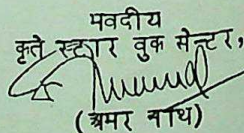 भवदीय
कृते स्टार बुक सेन्टर,
(अमर नाथ)